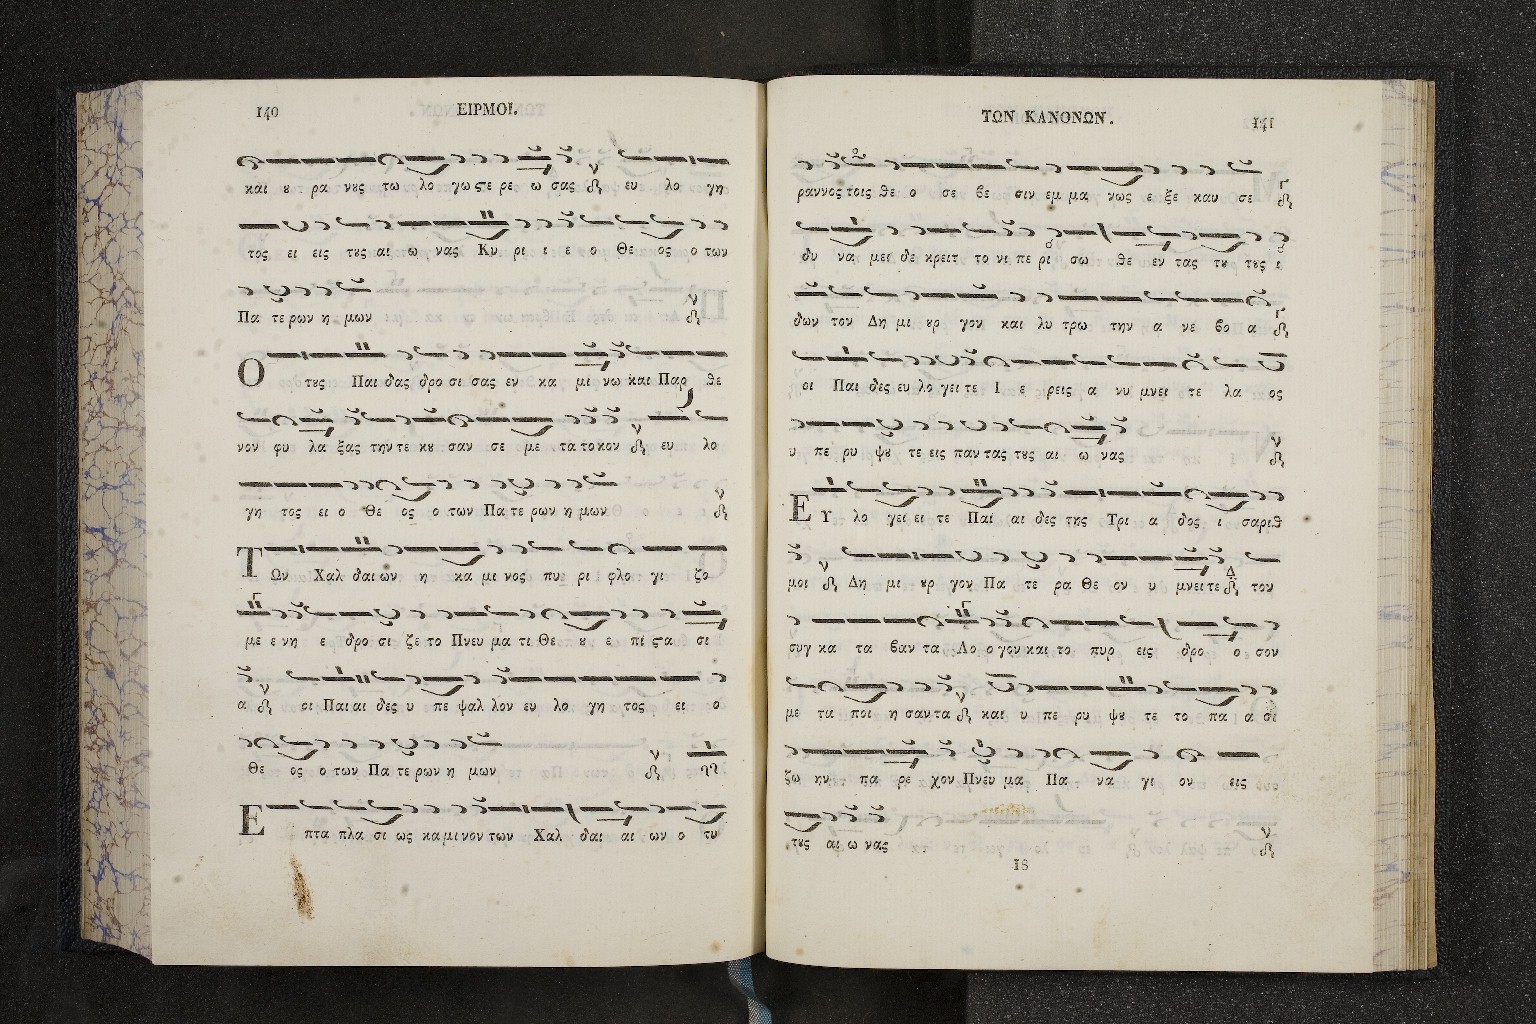 140
ΕΙΡΜΟΙ.
και ȣ ρα νȣς τω λο γω ϛε ρε ω σας ευ λο γη
τος ει εις τȣς αι ω νας Κυ ρι ι ε ο Θε ος ο των
Πα τε ρων η μων
Ο τȣς Παι δας δρο σι σας εν κα μι νω και Παρ θε
νον φυ λα ξας την τε κȣ σαν σε με τα το κον ευ λο
γη τος ει ο Θε ος ο των Πα τε ρων η μων
Των Χαλ δαι ων η κα μι νος πυ ρι φλο γι ζο
με ε νη ε δρο σι ζε το Πνευ μα τι Θε ȣ ε πι ϛα σι
α οι Παι αι δες υ πε ψαλ λον ευ λο γη τος ει ο
Θε ος ο των Πα τε ρων η μων
Ε πτα πλα σι ως κα μι νον των Χαλ δαι αι ων ο τυ
ΤΩΝ ΚΑΝΟΝΩΝ.
141
ραννος τοις θε ο σε βε σιν εμ μα νως ε ξε καυ σε
δυ να μει δε κρειτ το νι πε ρι σω θε εν τας τȣ τȣς ι
δων τον Δη μι ȣρ γον και λυ τρω την α νε βο α
οι Παι δες ευ λο γει τε Ι ε ρεις α νυ μνει τε λα ος
υ πε ρυ ψȣ τε εις παν τας τȣς αι ω νας
Ε Υ λο γει ει τε Παι αι δες της Τρι α δος ι σαριθ
μοι Δη μι ȣρ γον Πα τε ρα Θε ον υ μνει τε τον
συγ κα τα βαν τα Λο ο γον και το πυρ εις δρο ο σον
με τα ποι η σαν τα και υ πε ρυ ψȣ τε το πα α σι
ζω ην πα ρε χον Πνευ μα Πα να γι ον εις
τȣς αι ω νας
18